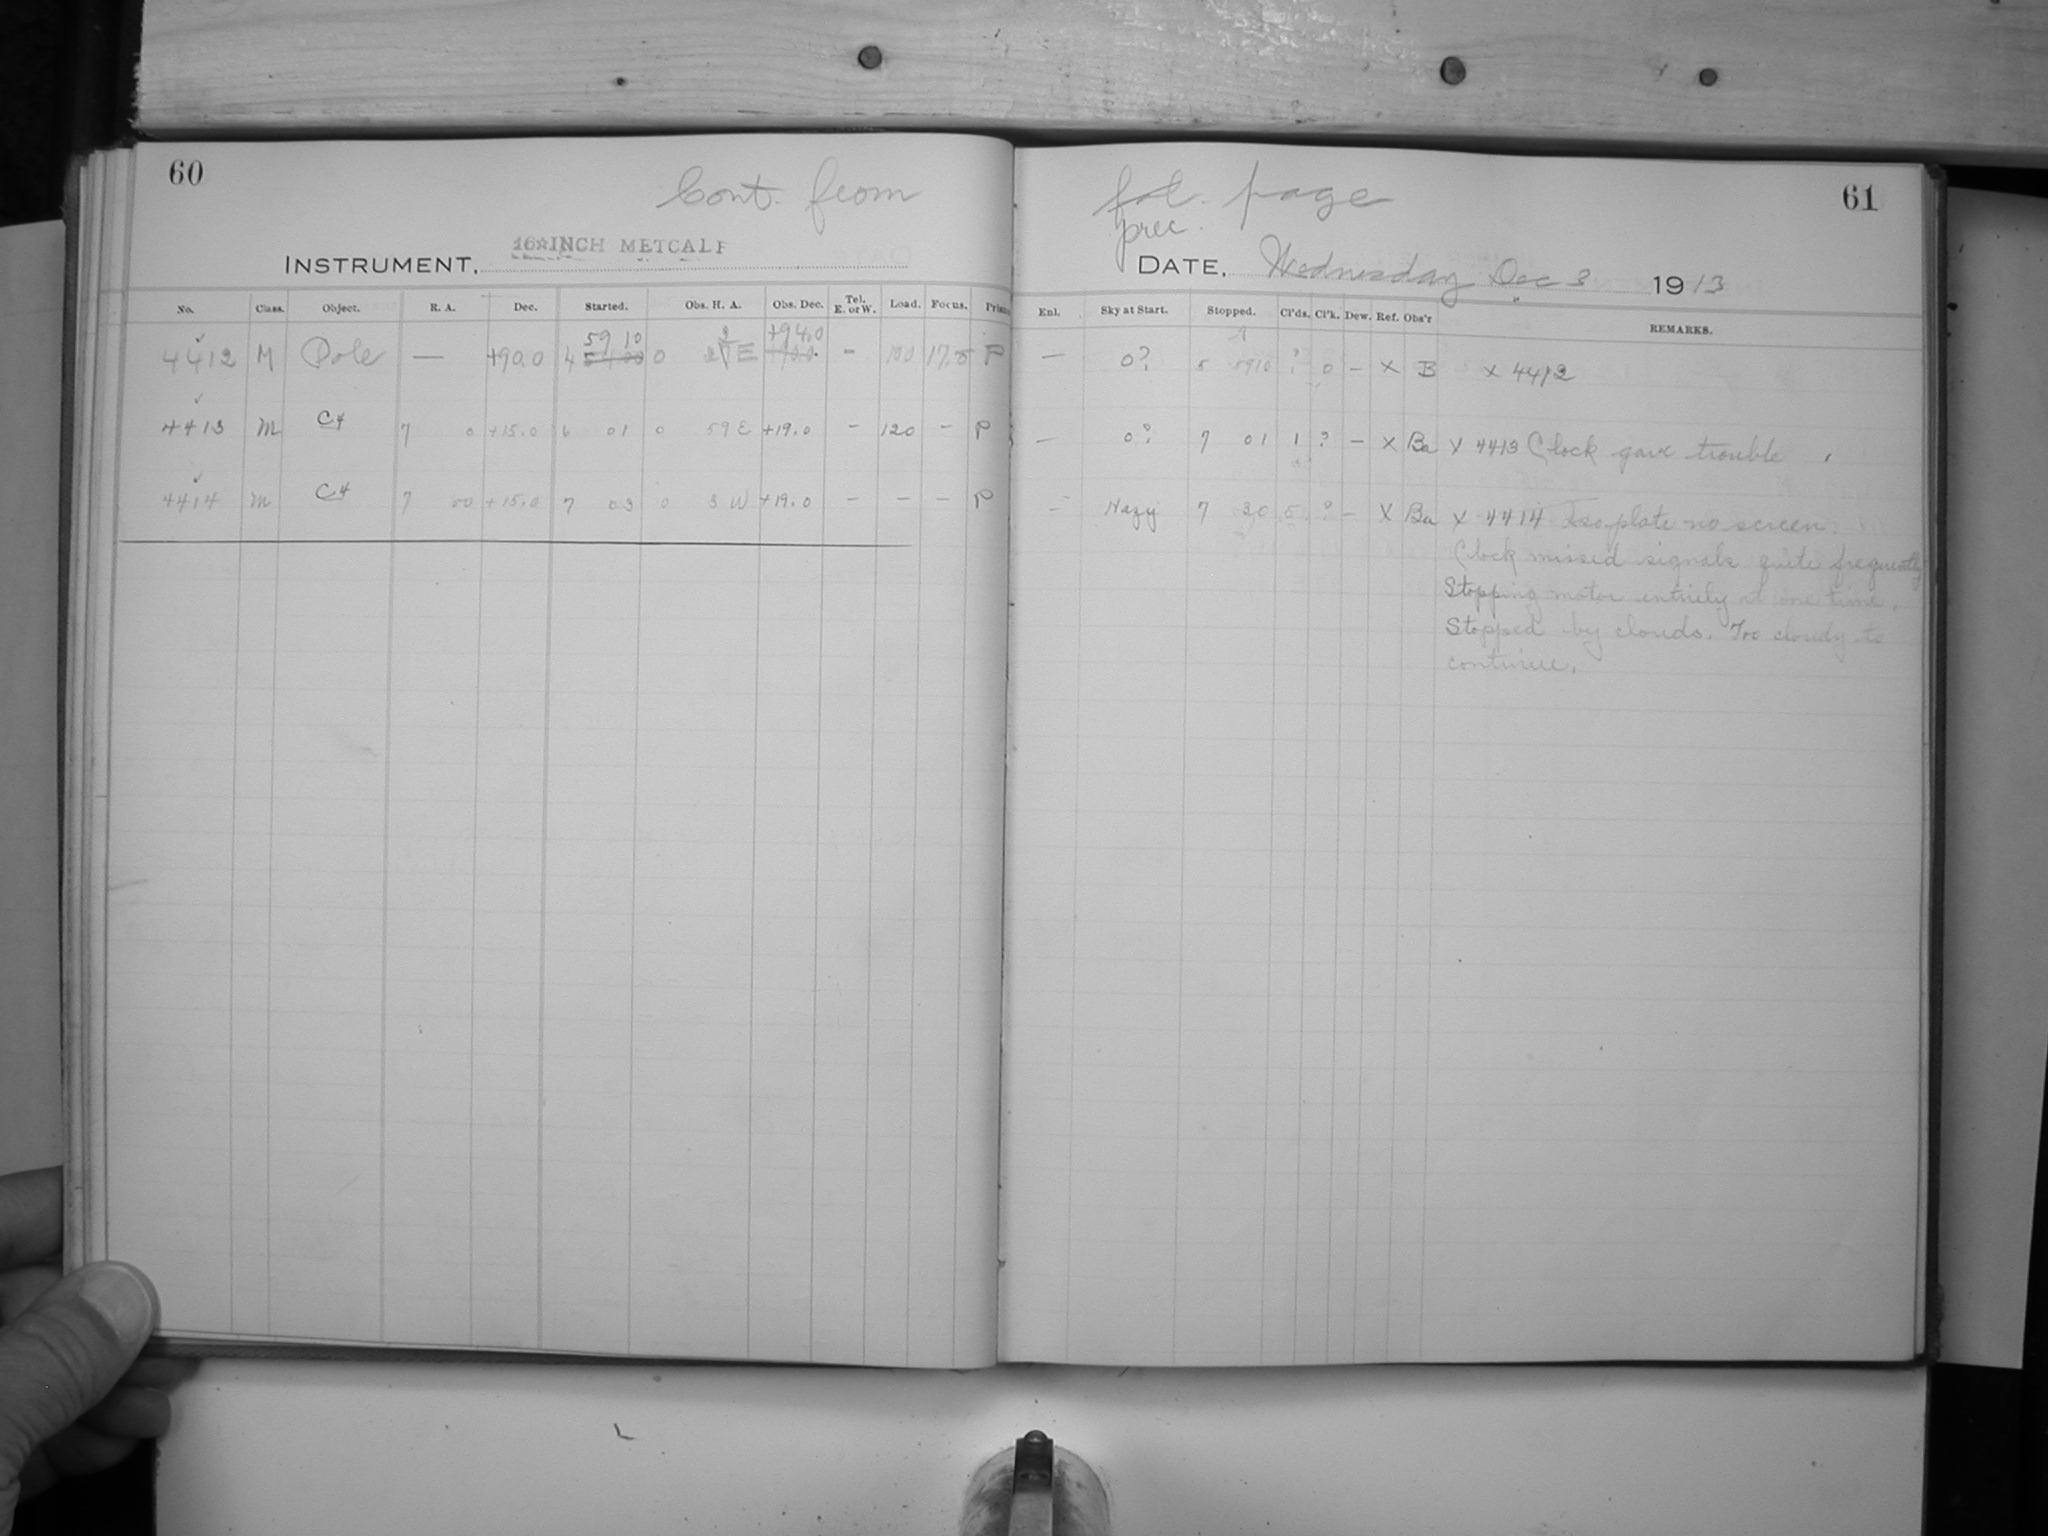 60
Cont. from fol. page 61
prec.
INSTRUMENT, 16 INCH METCALF DATE, Wednesday Dec 3 1913
No. Class. Object. R. A. Dec. Started. Obs. H. A. Obs. Dec. Tel. E. or W. Load. Focus. Enl. Sky at Start. Stopped. Cl'ds. Cl'k. Dew. Ref. Obs'r REMARKS.
59 10 +94.0
4412 M Pole — +90.0 4 0 E - 100 17.5 P — 0? 5 5910 ? 0 - X B X 4412
4413 M C4 7 0 +15.0 6 01 0 59 E +19.0 - 120 - P — 0? 7 01 1 ? - X Ba X 4413 Clock gave trouble.
4414 M C4 7 00 +15.0 7 03 0 3 W +19.0 - - - P - Hazy 7 30 5 ? - X Ba X 4414 Iso plate no screen.
Clock missed signals quite frequently
Stopping motor entirely at one time.
Stopped by clouds. Too cloudy to
continue.